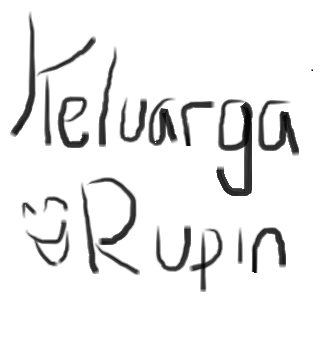 Keluarga
Rupin